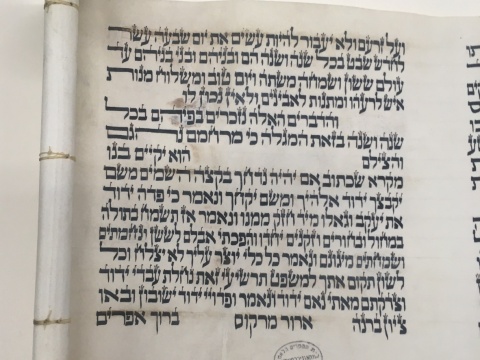 ועל זרעם ולא יעבור להיות עשים את יום שבעה עשר
לחדש שבט בכל שנה ושנה הם ובניהם ובני בניהם עד
עולם ששון ושמחה משתה ויום טוב ומשלוח מנות
איש לרעהו ומתנות לאביונים ולאין נכון לו
והדברים האלה נזכרים בפיהם בכל
שנה ושנה בזאת המגלה כי מרחמם וגם
והצילם הוא יקיים בנו
מקרא שכתוב אם יהיה נדחך בקצה השמים משם
יקבצך ידוד אלהיך ומשם יקחך ונאמר כי פדה ידוד
את יעקב וגאלו מיד חזק ממנו ונאמר אז תשמח בתולה
במחול ובחורים וזקנים יחדו והפכתי אבלם לששון ונחמתים
ושמחתים מיגונם ונאמר כל כלי יוצר עליך לא יצלח וכל
לשון תקום אתך למשפט תרשיעי זאת נחלת עבדי ידוד
וצדקתם מאתי נאם ידוד ונאמר ופדויי ידוד ישובון ובאו
ציון ברנה ארור מרקוס ברוך אפרים